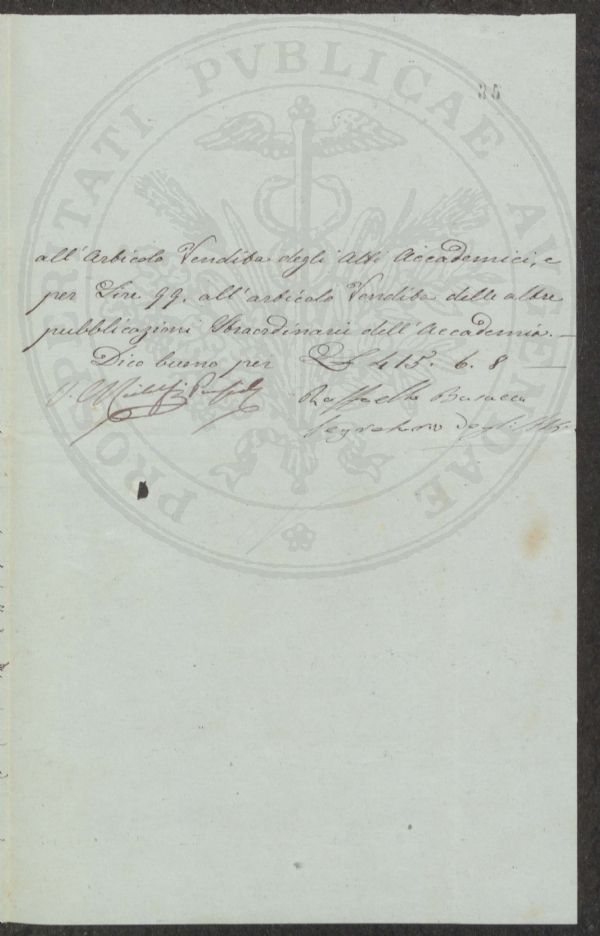 PROSPERITATI PVBLICAE AVGENDAE
all'Articolo Vendita degli Atti Accademici, e
per Lire 99. all'articolo Vendita delle altre
pubblicazioni Straordinarie dell'Accademia. —
Dico buono per £ 415. 6. 8 —
V. Ridolfi
Raffaello Busacca
Segretario degli Atti